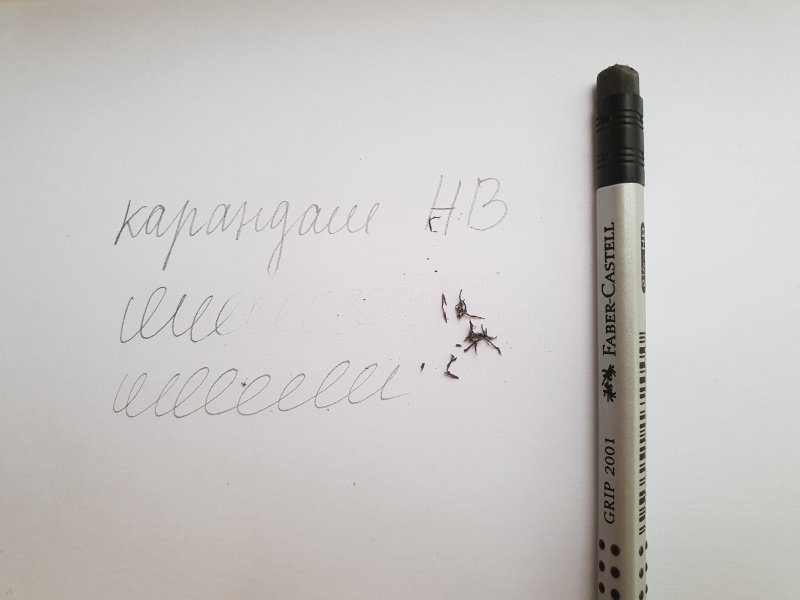 карандаш HB
FABER-CASTELL
GRIP 2001